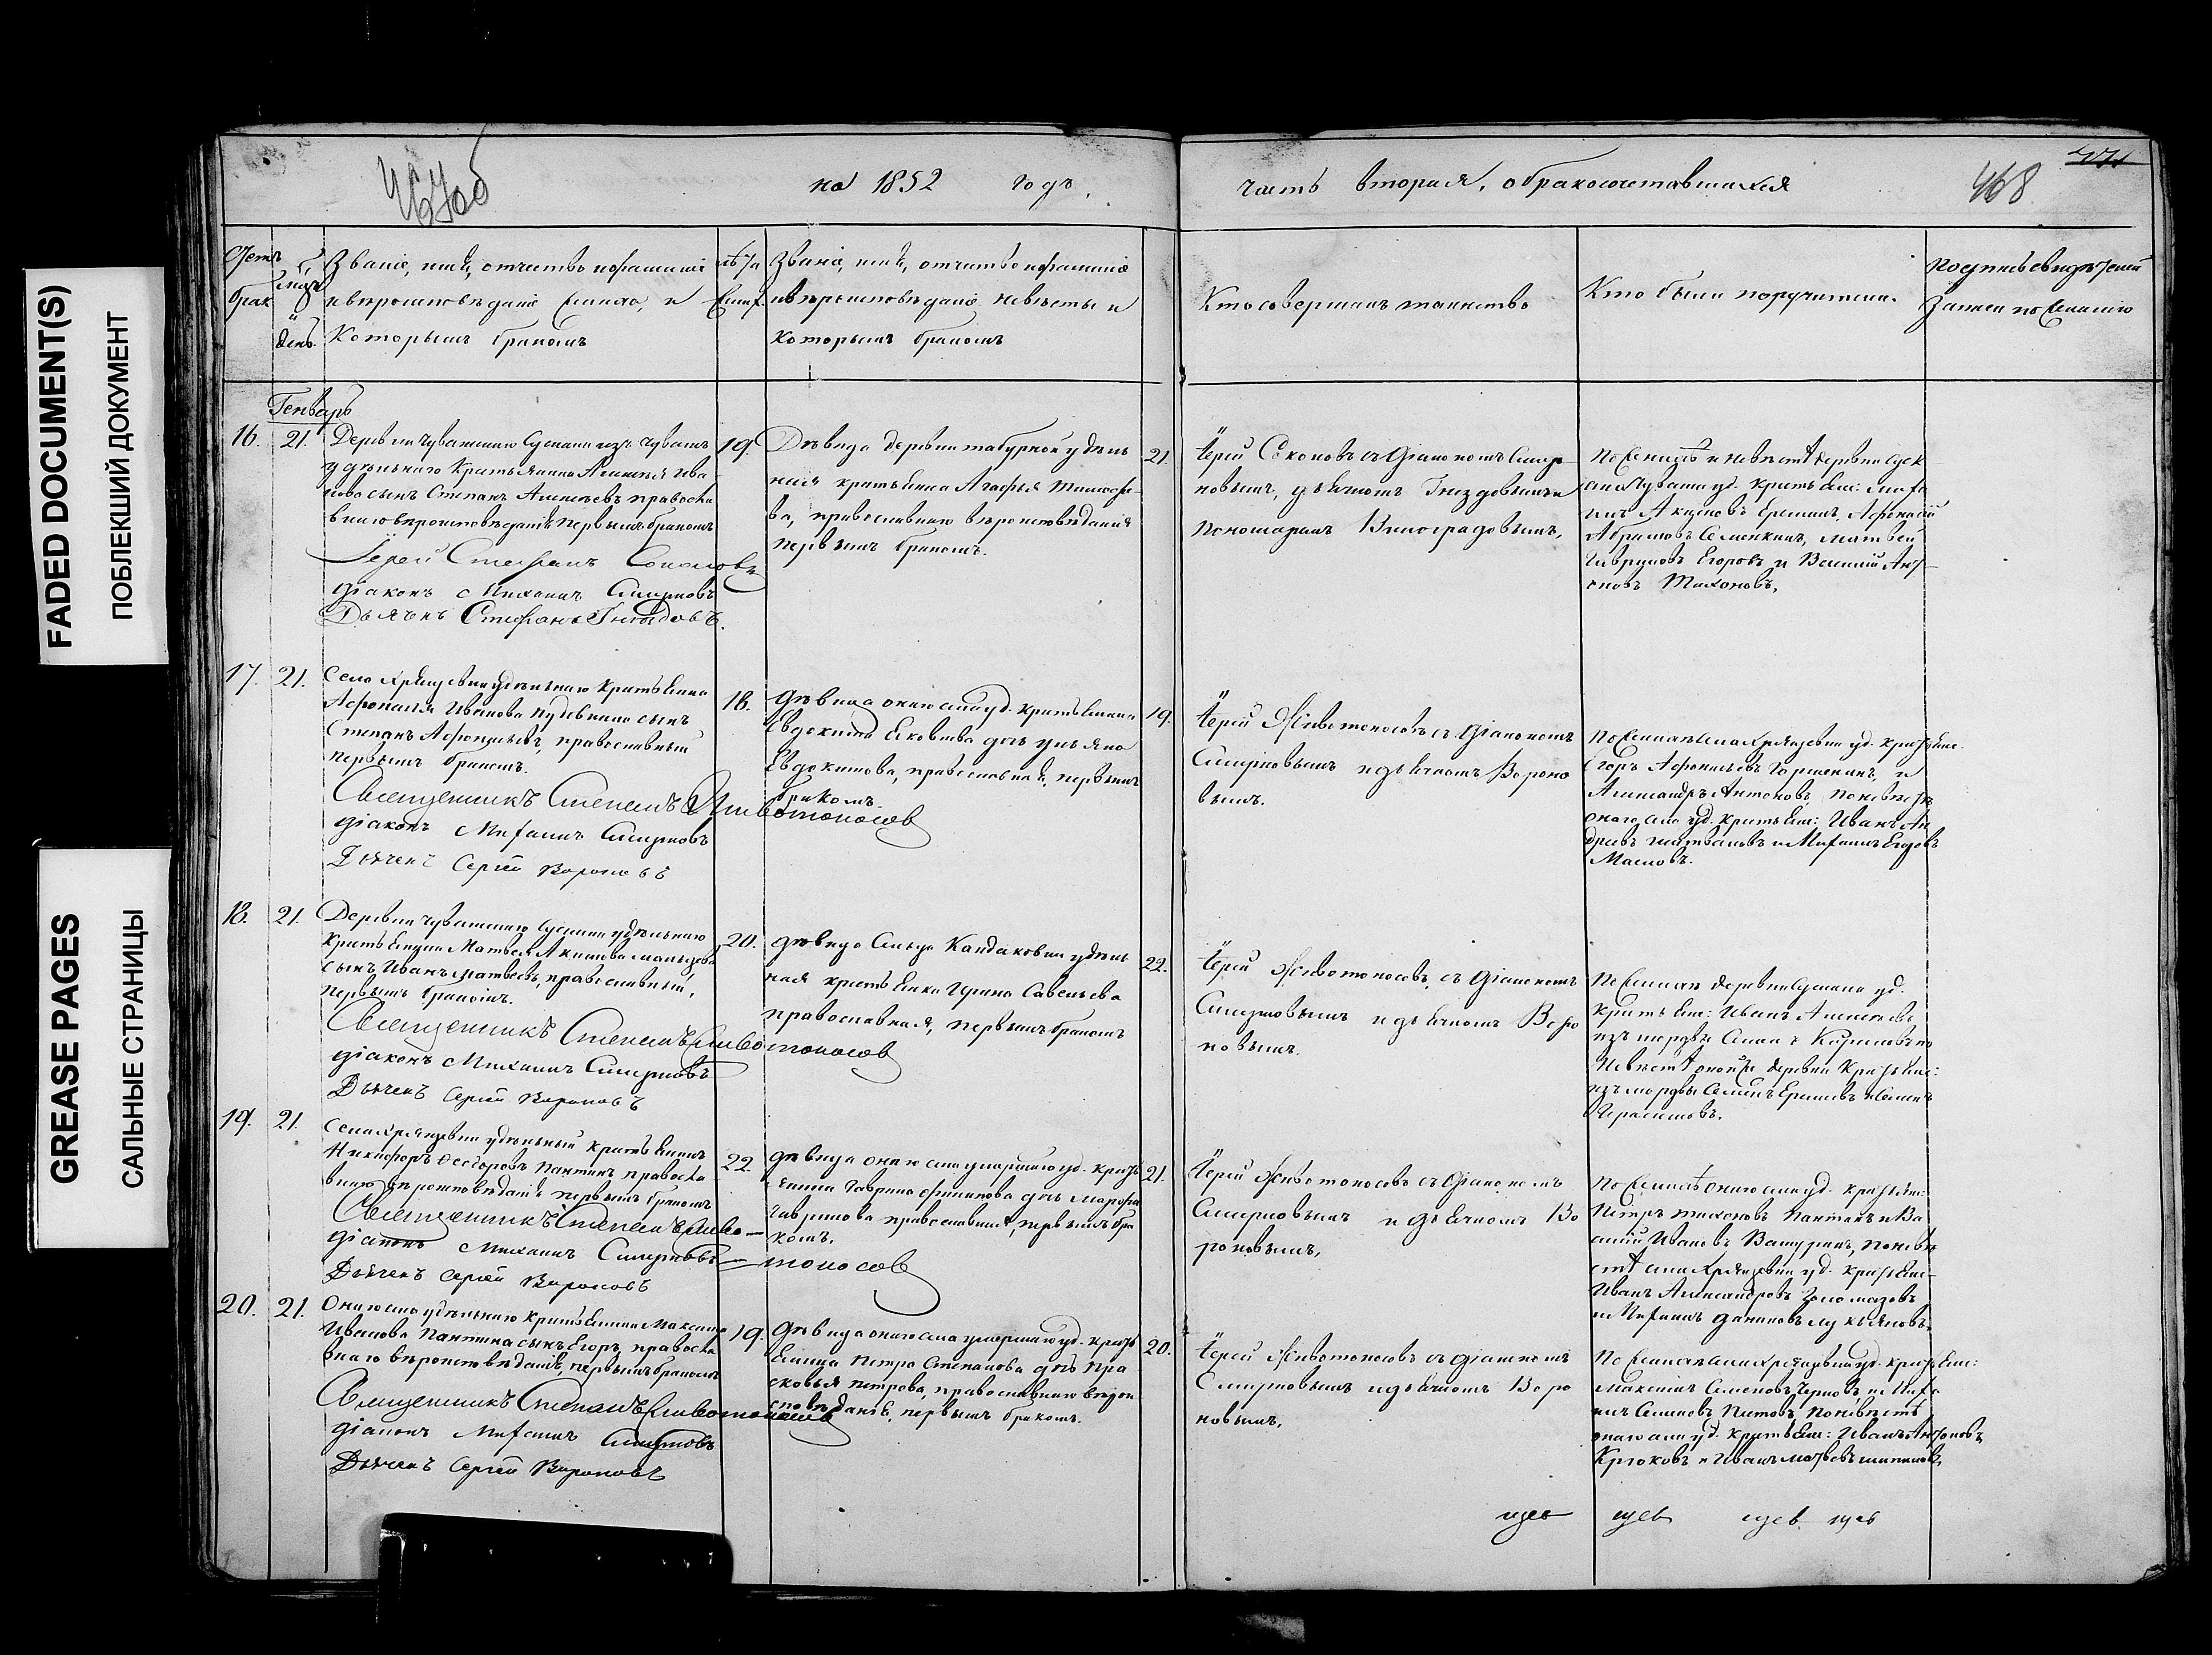 FADED DOCUMENT(S)
ПОБЛЕКШИЙ ДОКУМЕНТ
GREASE PAGES
САЛЬНЫЕ СТРАНИЦЫ
467об
на 1852 годъ.
часть вторая, о бракосочетавшихся
468
Счетъ брак
день
Званіе, имя, отчество и фамилія
и вѣроисповѣданіе жениха, и
которымъ бракомъ
лѣта жених
Званіе, имя, отчество и фамилія
и вѣроисповѣданіе невѣсты и
которымъ бракомъ
Кто совершалъ таинство
Кто были поручители.
Подписъ свидѣтелей
записи по желанію
Генварь
16.
21.
Деревни Чувашскаго Сускана изъ чувашъ
удѣльнаго крестьянина Алексѣя Ива
нова сынъ Степанъ Алексѣевъ православ
внаго вѣроисповѣданія первымъ бракомъ
Іерей Стефанъ Соколовъ
діаконъ Михаилъ Смирновъ
Дьячекъ Стефанъ Гнѣздовъ.
19.
Дѣвица деревни Табурной удѣль
ная крестьянка Агафья Тимофе
ва, православнаго вѣроисповѣданія
первымъ бракомъ.
21.
Іерей Соколовъ съ діакономъ Смир
новымъ, дьячкомъ Гнѣздовымъ и
пономаремъ Виноградовымъ.
По женихѣ и невѣстѣ деревни Суск
ана Чуваш уд. крестьян: Миха
илъ Акимовъ Ереминъ, Афанасій
Абрамовъ Семенкинъ, Матвей
Гавриловъ Егоровъ и Василій Ант
оновъ Тихоновъ.
17.
21.
Села Хрящевки удѣльнаго крестьянина
Афонасья Иванова сынъ
Степанъ Афонасьевъ, православный
первымъ бракомъ.
Священникъ Степанъ Животоносов
діаконъ Михаилъ Смирновъ
Дьячекъ Сергей Вороновъ
18.
дѣвица онаго села уд. крестьянина
Евдокима Яковлева дочь Ульяна
Евдокимова, православная, первымъ
бракомъ.
19.
Іерей Животоносовъ съ діакономъ
Смирновымъ и дьячкомъ Вороно
вымъ.
По женихѣ села Хрящевки уд. крестьяне
Егоръ Афонасьевъ и
Александръ Антоновъ, по невѣстѣ
онаго села уд. крестьян: Иванъ Ан
древъ и Михаилъ Егоровъ
Масловъ.
18.
21.
Деревни Чувашскаго Сускана удѣльнаго
крестьянина Матвея Акимова
сынъ Иванъ Матвеевъ, православный,
первымъ бракомъ.
Священникъ Степанъ Животоносов
діаконъ Михаилъ Смирновъ
Дьячекъ Сергей Вороновъ
20.
дѣвица Сельца Кандаковки удѣль
ная крестьянка Ирина Савельева
православная, первымъ бракомъ
22.
Іерей Животоносовъ, съ діакономъ
Смирновымъ и дьячкомъ Воро
новымъ.
По женихѣ деревни Сускана уд.
крестьян: Иванъ Алексѣевъ
изъ мордвы Кириловъ по
невѣстѣ оной же деревни крестьяне:
изъ мордвы Семенъ Еремѣевъ и Семенъ
Герасимовъ.
19.
21.
Села Хрящевки удѣльный крестьянинъ
Никифоръ Ѳедоровъ Пантинъ правосла
внаго вѣроисповѣданія первымъ бракомъ
Священникъ Степанъ Живо-
діаконъ Михаилъ Смирновъ
Дьячекъ Сергей Вороновъ
22.
дѣвица онаго села умершаго уд. кресть
янина Гаврила Филипова дочь Марфа
Гаврилова православная, первымъ бра
комъ.
тоносов
21.
Іерей Животоносовъ съ діакономъ
Смирновымъ и дьячкомъ Во
роновымъ.
По женихѣ онаго села уд. крестьян:
Петръ Тихоновъ Пантинъ и Ва
силій Ивановъ Батуринъ, по невѣ
стѣ села Хрящевки уд. крестьяне
Иванъ Александровъ
и Михаилъ Даниловъ Лукьяновъ.
20.
21.
Онаго села удѣльнаго крестьянина Максима
Иванова Пантина сынъ Егоръ, правосла
внаго вѣроисповѣданія, первымъ бракомъ
Священникъ Степанъ Животоносов
діаконъ Михаилъ Смирновъ
Дьячекъ Сергей Вороновъ
19.
Дѣвица онаго села умершаго уд. кресть
янина Петра Степанова дочь Пра
сковья Петрова, православнаго вѣрои
сповѣданія, первымъ бракомъ.
20.
Іерей Животоносовъ съ діакономъ
Смирновымъ и дьячкомъ Воро
новымъ.
По женихѣ села Хрящевки уд. крестьян:
Максимъ Семеновъ Черновъ и Миха
илъ Семеновъ Титовъ, по невѣстѣ
онаго села уд. крестьян: Иванъ Антоновъ
Крюковъ и Иванъ Матвевъ